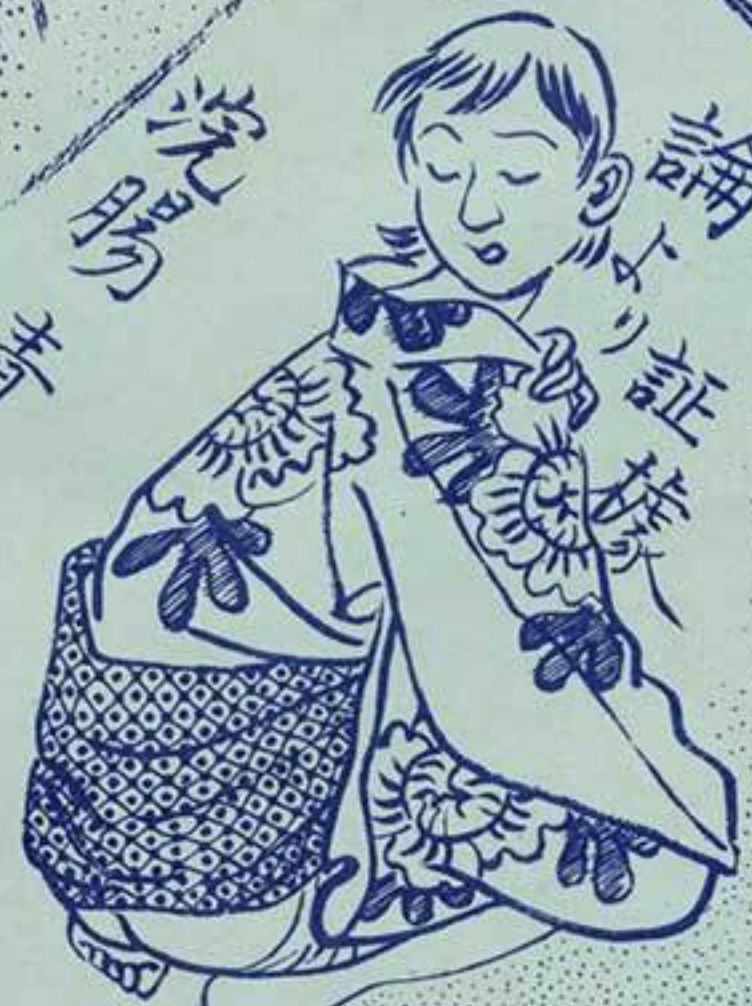 論より証拠
浣腸